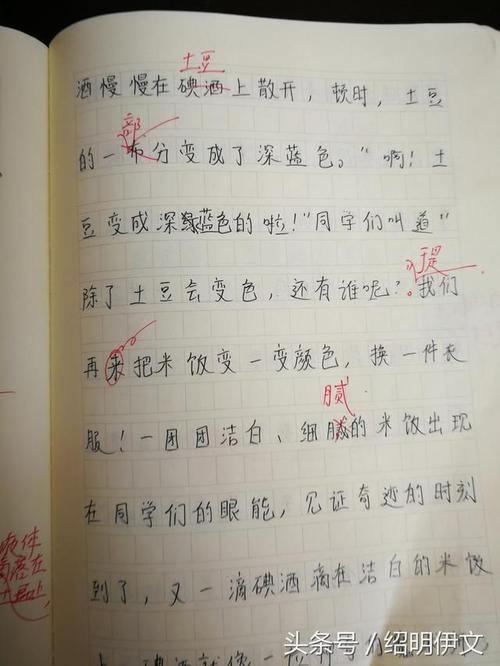 土豆
酒慢慢在碘酒上散开，顿时，土豆
部
的一布分变成了深蓝色。"啊！土
豆变成深蓝色的啦！"同学们叫道"
于是
除了土豆会变色，还有谁呢？我们
再来把米饭变一变颜色，换一件衣
腻
服！一团团洁白、细腻的米饭出现
在同学们的眼能，见证奇迹的时刻
到了，又一滴碘酒滴在洁白的米饭
头条号/绍明伊文